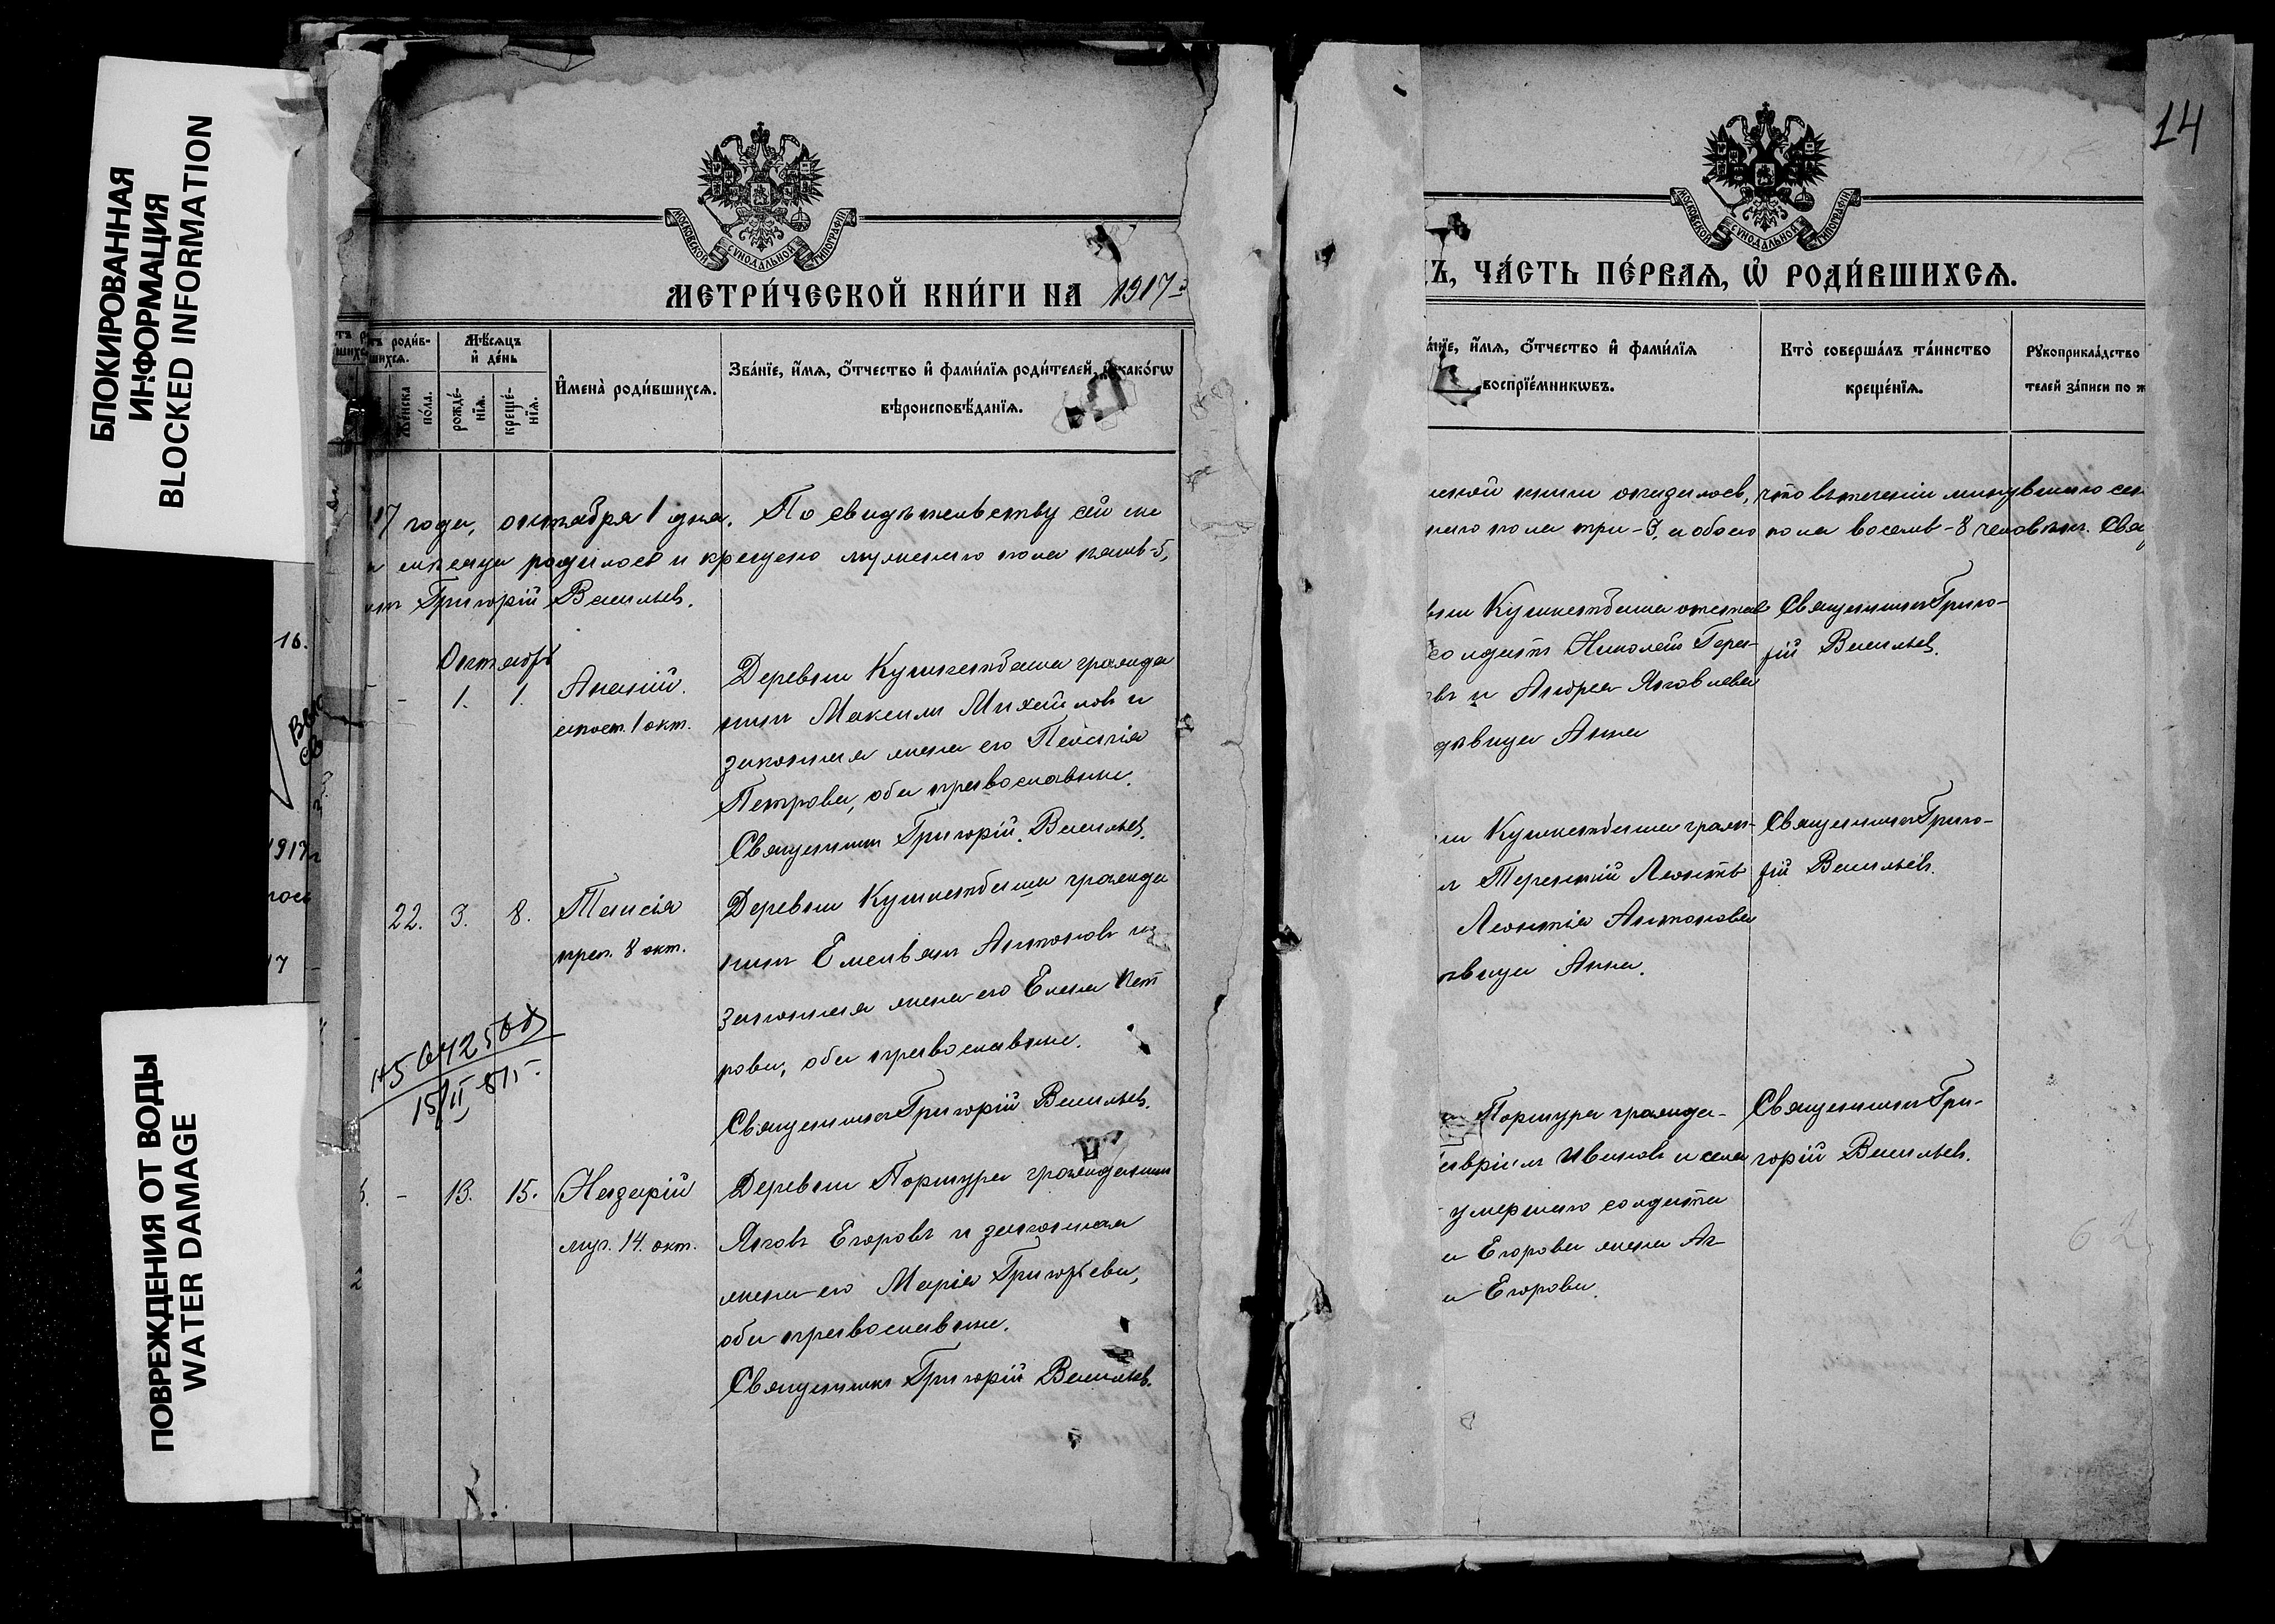 БЛОКИРОВАННАЯ
ИНФОРМАЦИЯ
BLOCKED INFORMATION
ПОВРЕЖДЕНИЯ ОТ ВОДЫ
WATER DAMAGE
МОСКОВСКОЙ СѴНОДАЛЬНОЙ ТИПОГРАФІИ
МЕТРИ́ЧЕСКОЙ КНИ́ГИ НА 1917
роди́в-
шихсѧ.
Мѣ́сѧцъ
и҆ де́нь
Же́нска
по́ла.
рожде́-
нїѧ.
креще́-
нїѧ.
И҆мена̀ роди́вшихсѧ.
Зва́нїе, и҆́мѧ, ѻ҆́тчество и҆ фами́лїѧ роди́телей, и҆ како́гѡ
вѣроисповѣ́данїѧ.
17 года, октября 1 дня. По свидѣтельству сей ме
мѣсяца родилось и крещено мужеского пола пять-5,
Григорій Васильев.
Октябрь
- 1. 1. Ананій
апост. 1 окт.
Деревни Кушкетбаша гражда
нинъ Максимъ Михайловъ и
законная жена его Пелагія
Петрова, оба православные.
Священникъ Григорій Васильев.
22. 3. 8. Таисія
преп. 8 окт.
Деревни Кушкетбаша гражда
нинъ Емельянъ Антоновъ и
законная жена его Елена Пет
рова, оба православные.
Священникъ Григорій Васильев.
- 13. 15. Назарій
муч. 14. окт.
Деревни Портура гражданин
Яковъ Егоровъ и законная
жена его Марія Григорьева,
оба православные.
Священникъ Григорій Васильев.
16.
14
МОСКОВСКОЙ СѴНОДАЛЬНОЙ ТИПОГРАФІИ
Ъ, ЧА́СТЬ ПЕ́РВАѦ, Ѡ҆ РОДИ́ВШИХСѦ.
а́нїе, и҆́мѧ, ѻ҆́тчество и҆ фами́лїѧ
воспрїе́мникѡвъ.
Кто̀ соверша́лъ та́инство
креще́нїѧ.
Рꙋкоприкла́дство
телей за́писи по ж
ской книги оказалось, что въ теченіи минувшаго сен
ского пола три-3, а обоего пола восемь-8 человѣкъ. Свя
Кушкетбаша отстав
солдатъ Николай Гера-
въ и Андрея Яковлева
дѣвица Анна
Священникъ Григо-
рій Васильев.
Кушкетбаша граж-
Терентий Леонтьев
Леонтія Антонова
дѣвица Анна.
Священникъ Григо-
рій Васильевъ.
Портура гражда-
авріилъ Ивановъ и села
умершаго солдата
а Егорова жена Аг-
а Егорова.
Священникъ Гри-
горій Васильев.
62